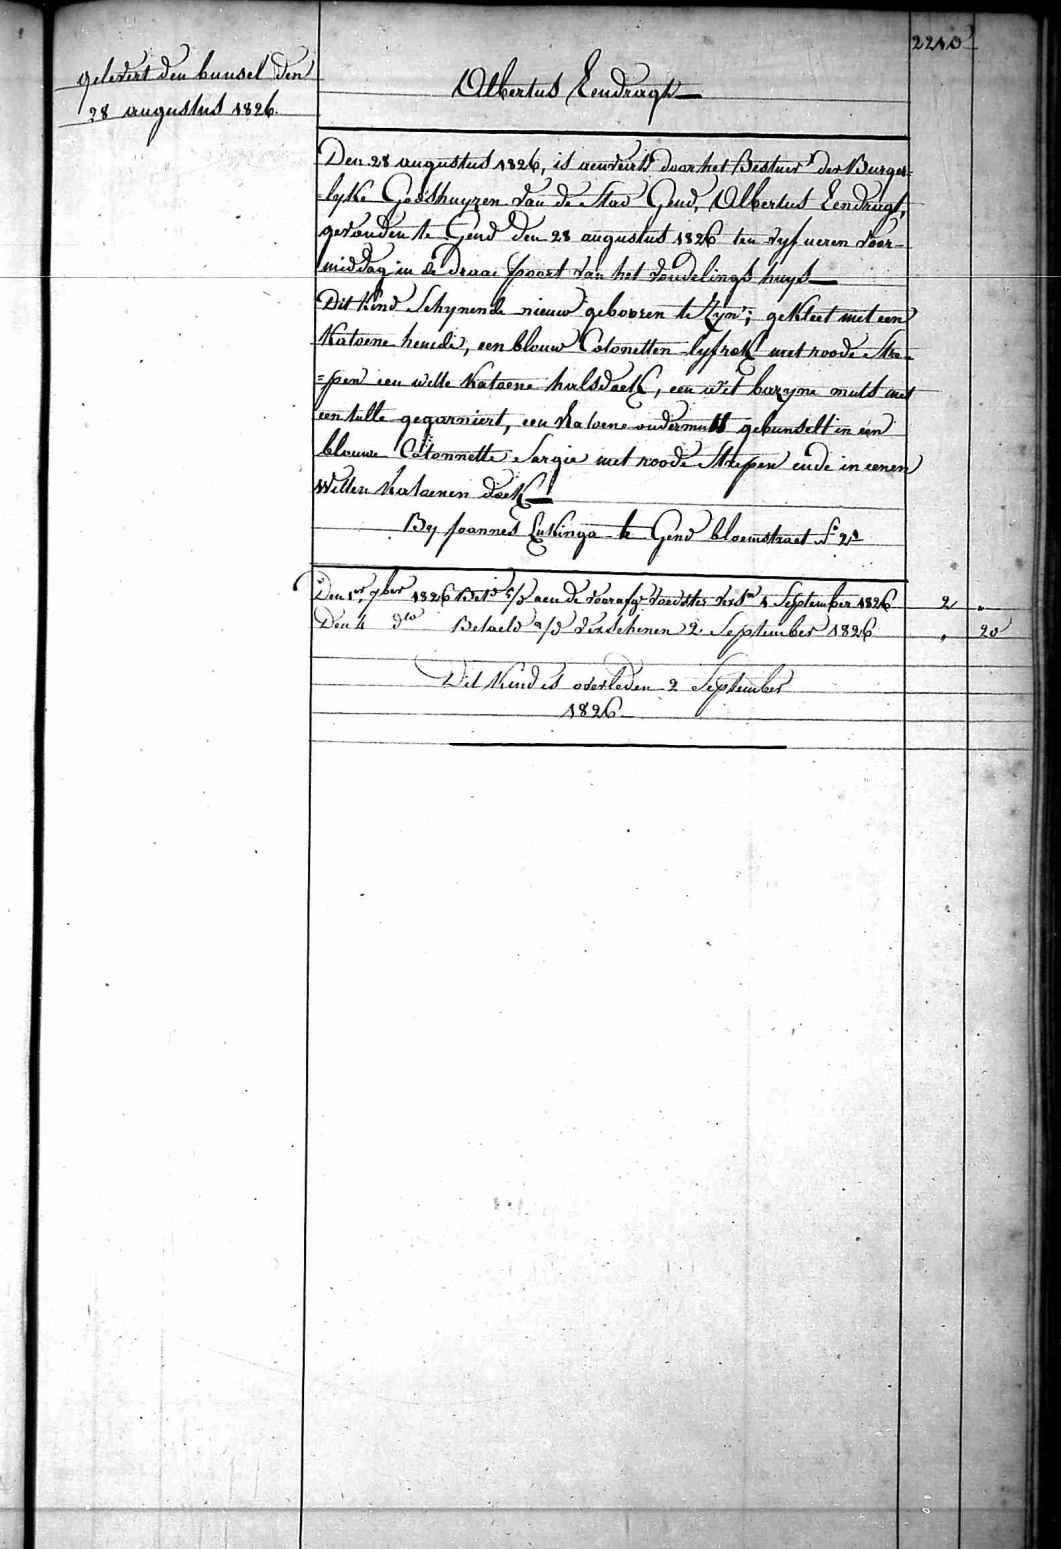 2210
gelevert den bunsel den
28 augustus 1826.
Albertus Eendragt
Den 28 augustus 1826, is aenveird door het Bestuer der Burger-
=lyke Godshuyzen van de Stad Gend, Albertus Eendragt,
gevonden te Gend den 28 augustus 1826 ten vyf ueren voor-
middag in de draai poort van het vondelings huys
Dit Kind Schynende nieuw gebooren te Zyn; gekleet met een
Katoene hemde, een blouw Cotonetten lyfrok met roode Stre-
=pen een witte Katoene halsdoek, een wit bazyne muts met
een tulle gegarniert, een Katoene ondermuts gebunselt in een
blouwe Cotonnette Sargie met roode Strepen ende in eenen
Witten Katoenen doek
By Joannes Lukinga te Gend bloemstraet N.º
Den 1er 7ber 1826 aen de voorafg.e voedster 1 September 1826 2 "
Den 4 dto Betaeld verschenen 2 September 1826 " 20
Dit Kind is overleden 2 September
1826